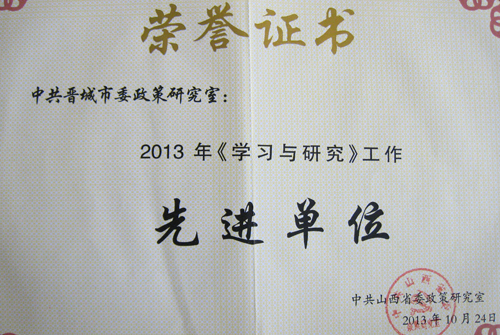 荣誉证书
中共晋城市委政策研究室：
2013 年《学习与研究》工作
先进单位
中共山西省委政策研究室
2013 年 10 月 24 日